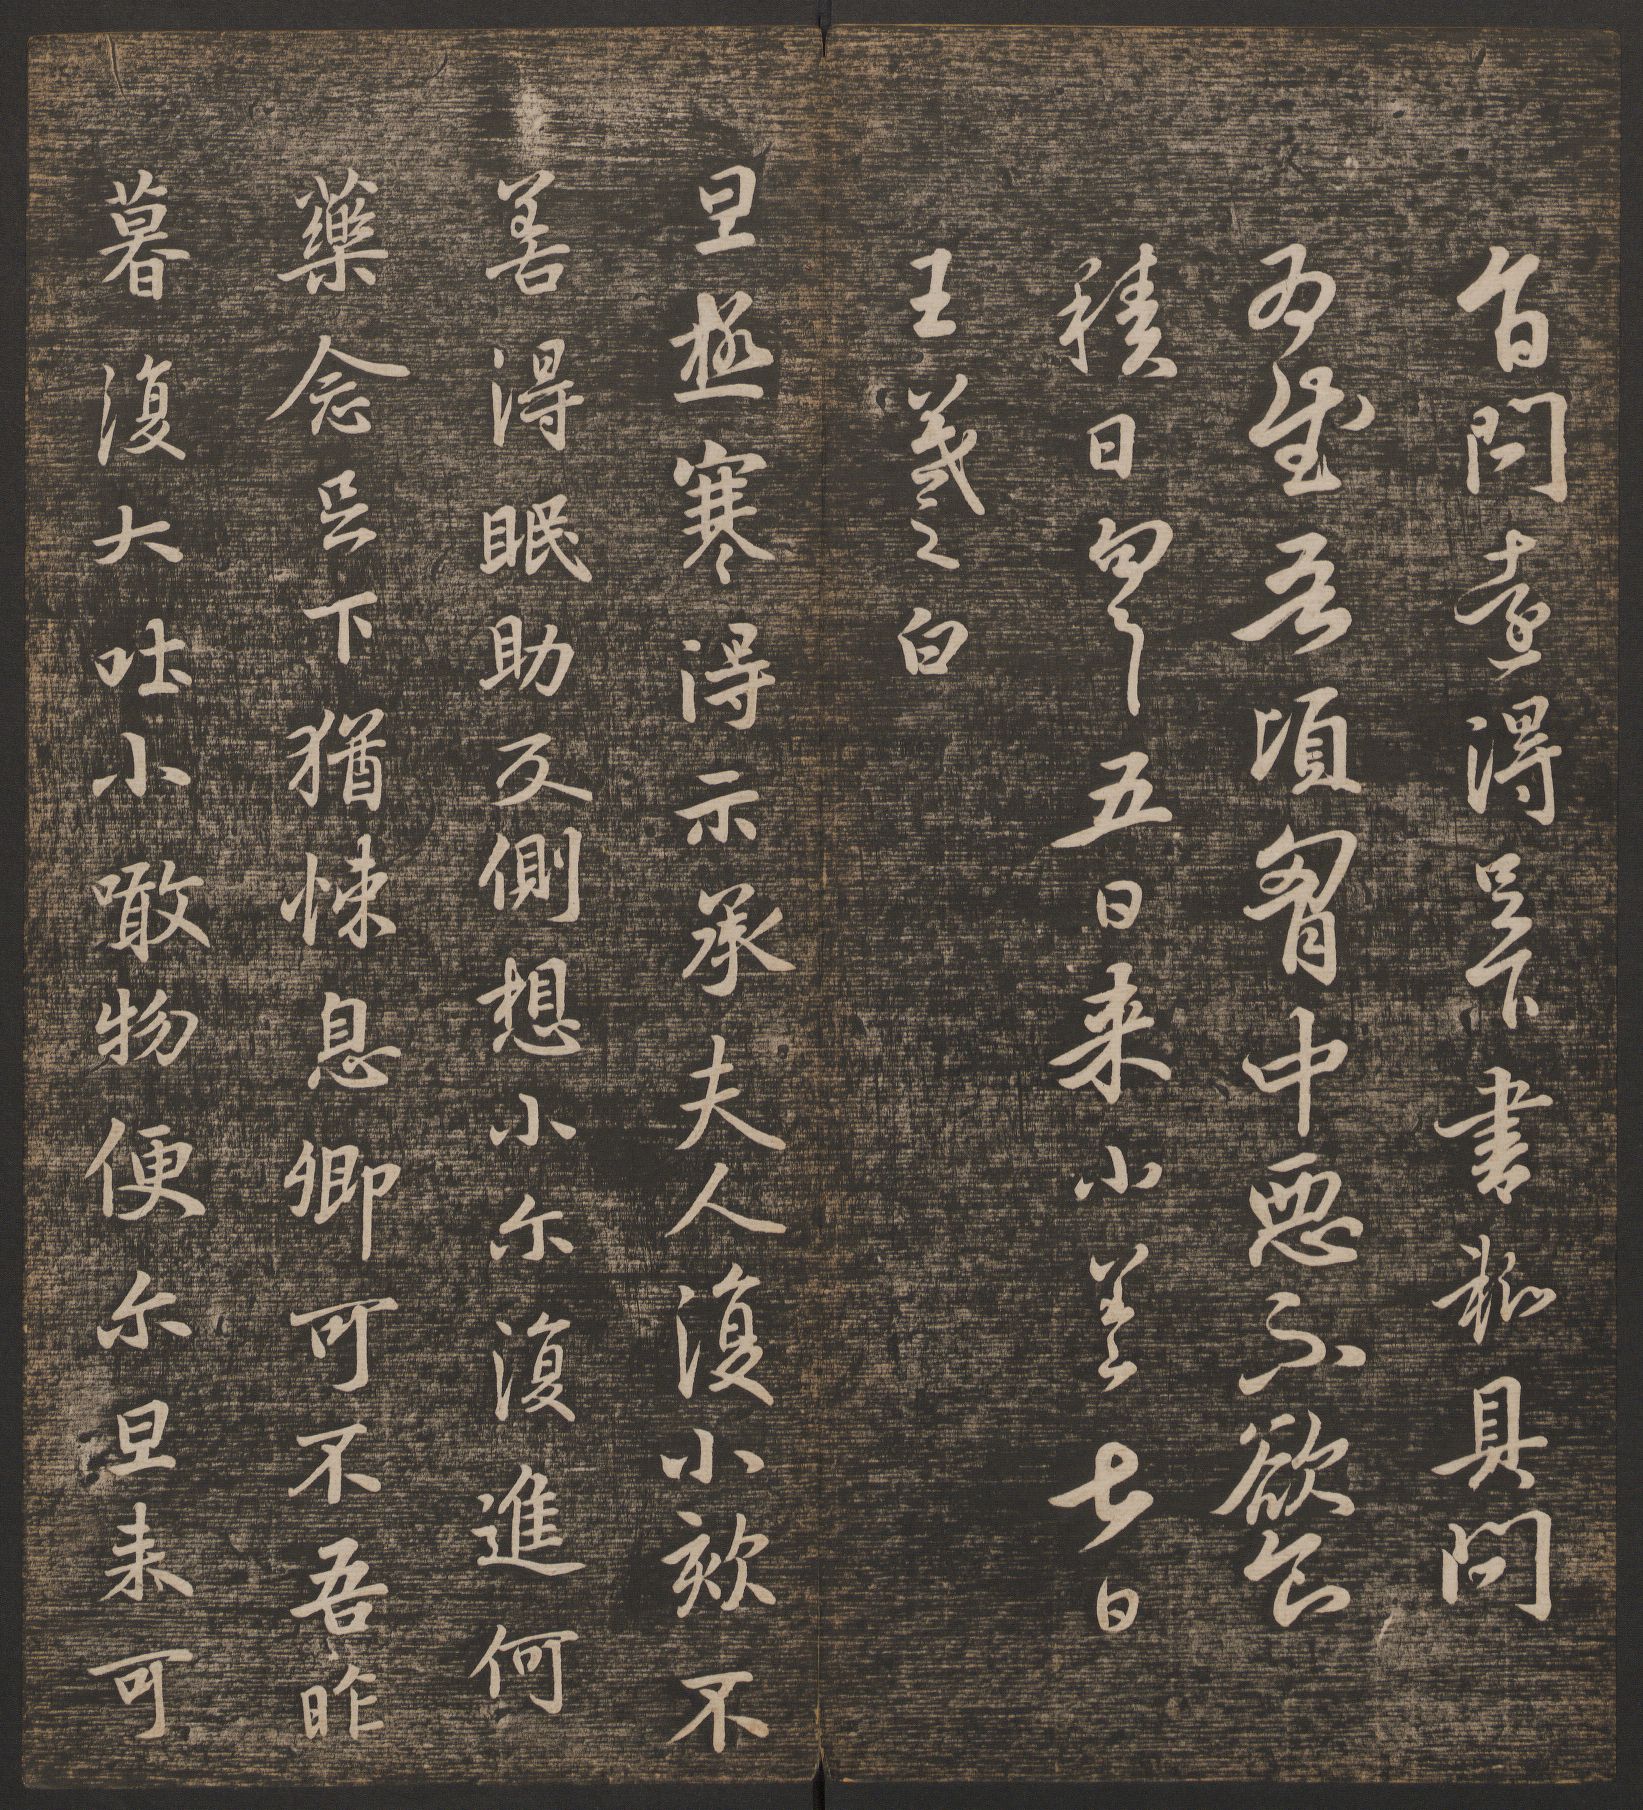 旨問得足下書粗具問
為慰吾頃胷中惡不欲食
積日五日来小差七日
王羲之白
旦極寒得示承夫人復小欬不
善得眠助反側想小尒復進何
藥念足下猶悚息卿可不吾昨
暮復大吐小噉物便尒旦来可